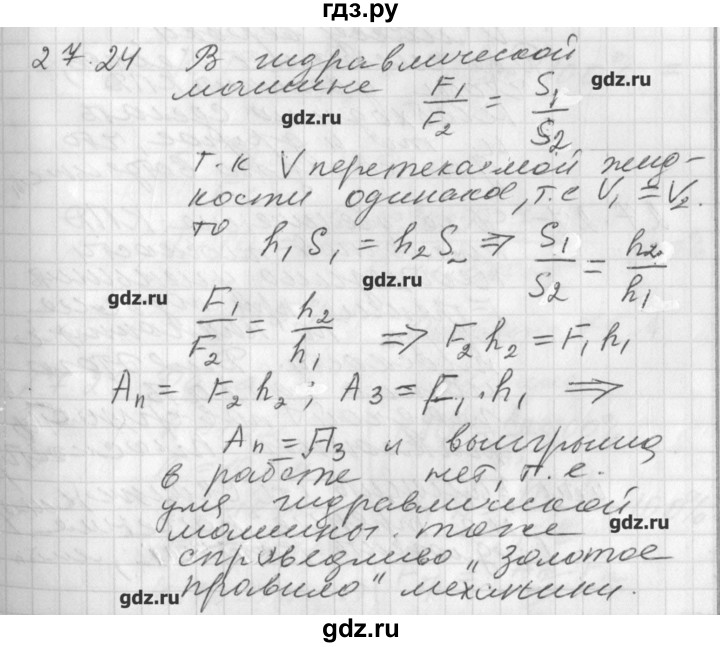 гдз.ру
27.24 В гидравлической
машине F₁/F₂ = S₁/S₂
gdz.ru
gdz.ru
т.к V перетекаемой жид-
кости одинаков, т.е V₁ = V₂.
то h₁ S₁ = h₂ S₂ ⇒ S₁/S₂ = h₂/h₁
gdz.ru
gdz.ru
F₁/F₂ = h₂/h₁ ⇒ F₂ h₂ = F₁ h₁
Aп = F₂ h₂; Aз = F₁ · h₁ ⇒
Aп = Aз и выигрыша
в работе нет, т.е.
для гидравлической
gdz.ru
машины тоже
справедливо „золотое
правило" механики.
gdz.ru
gdz.ru